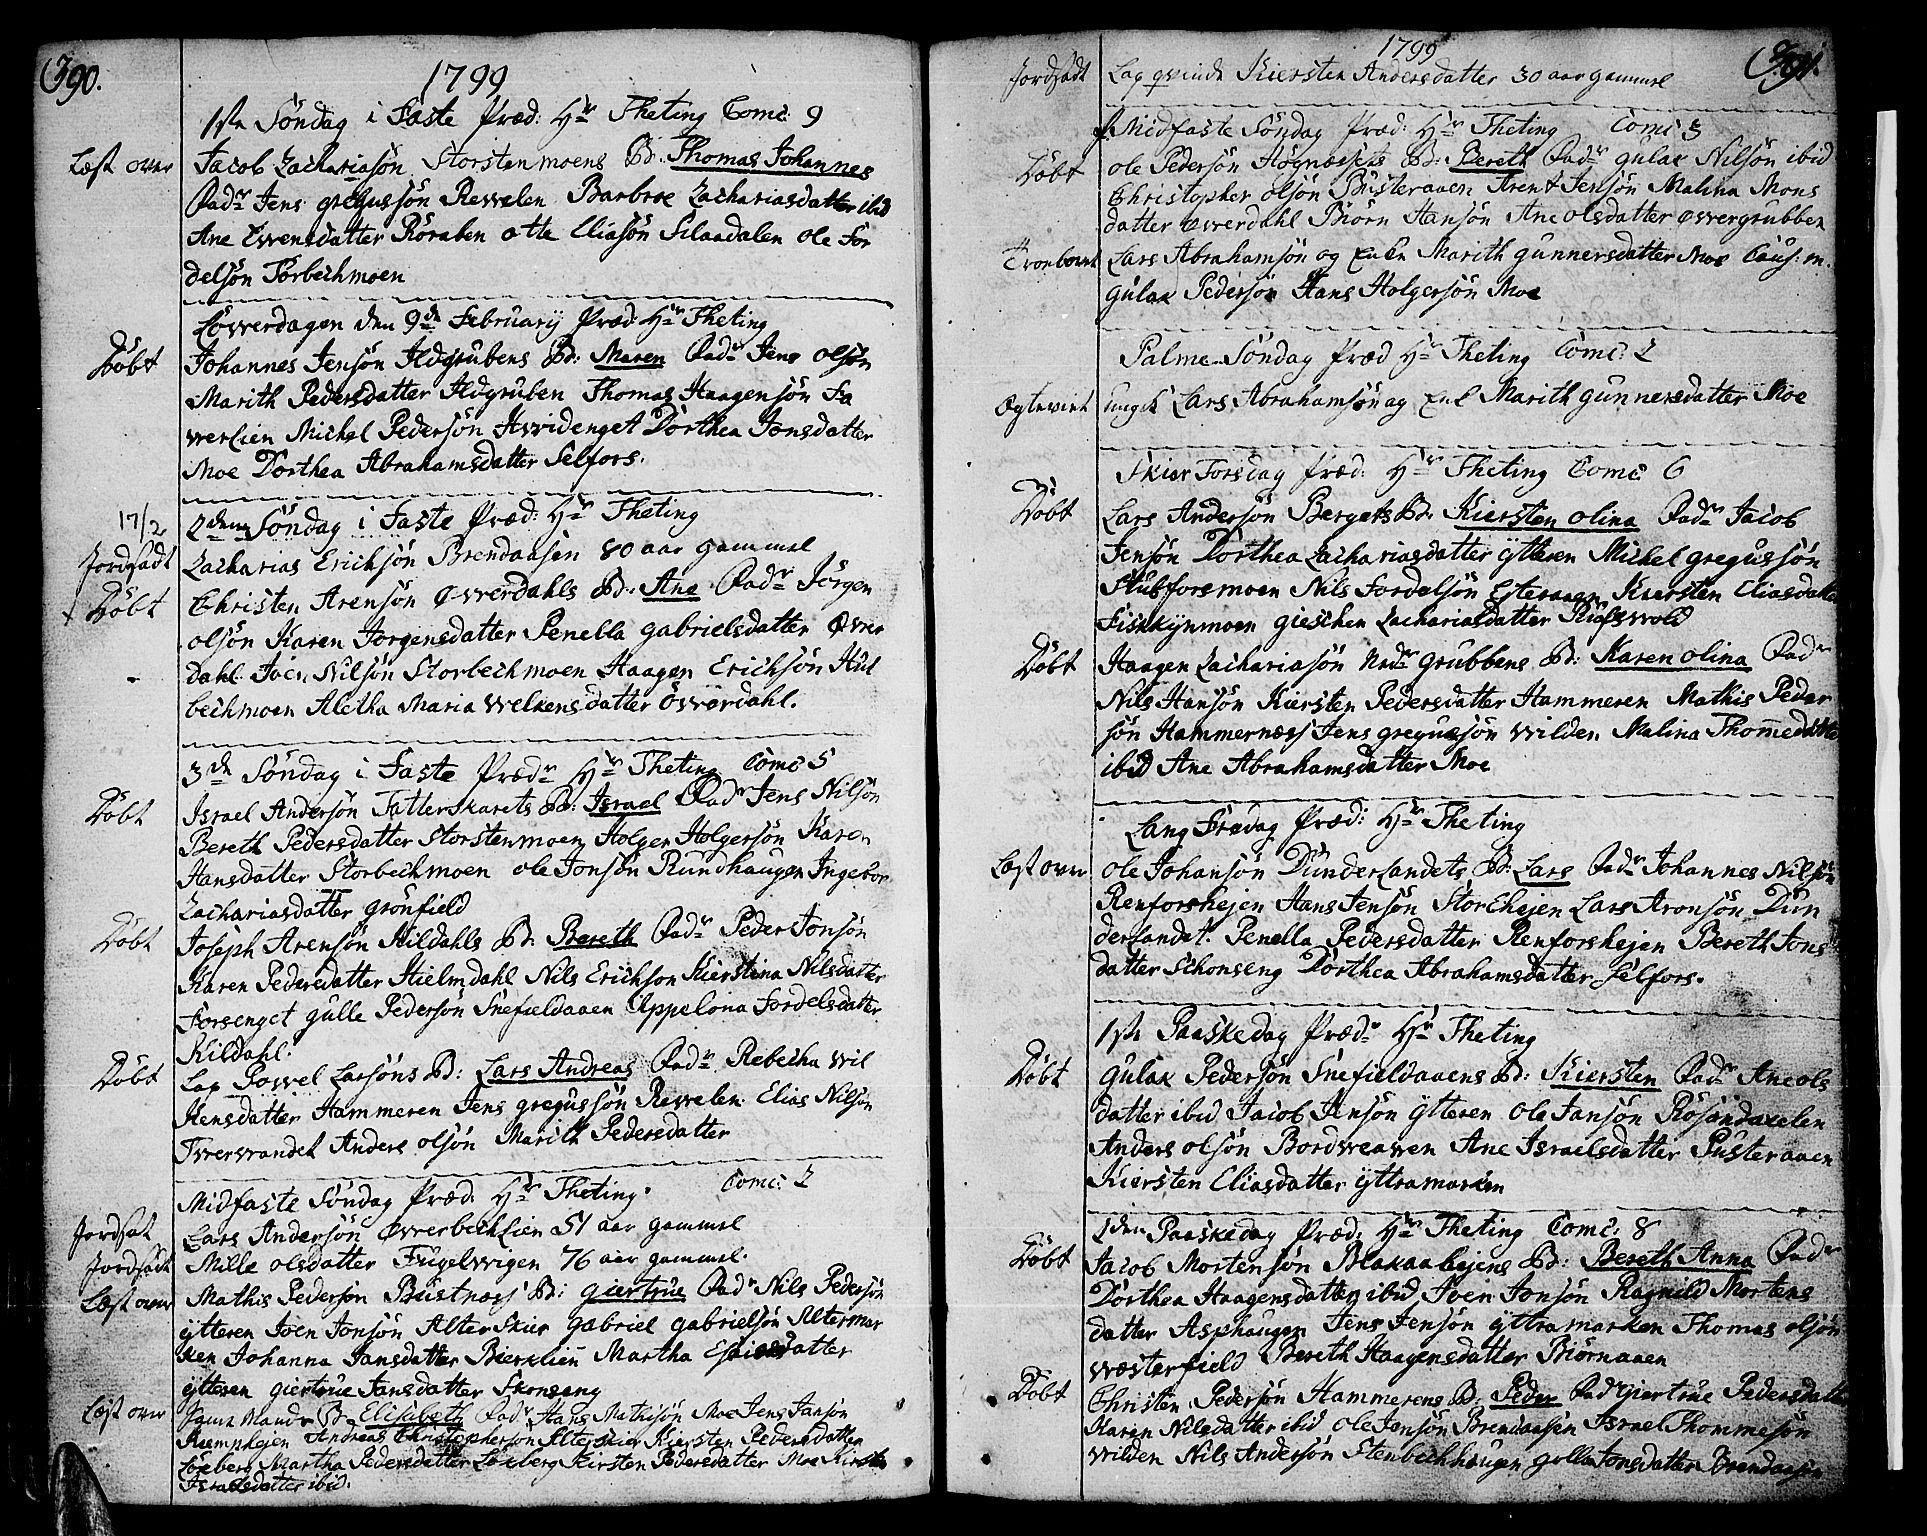 390.
1799
1ste Söndag i Faste Præd: Hr Theting Comc: 9
Læst over Jacob Zachariasön Storstenmoens B: Thomas Johannes
Fadr Jens gregussön Revvelen Barbroe Zachariasdatter ibid
Ane Evvensdatter Röraben otte Eliasön Silaadalen ole For
delsön Torbechmoen
Lövverdagen den 9de Februarij Præd: Hr Theting
Döbt Johannes Jensön Ildgrubens B: Maren Fadr Jens olsön
Marith Pedersdatter Ildgruben Thomas Haagensön Fa
vverlien Michel Pedersön Hvvidenget Dorthea Jonsdatter
Moe Dorthea Abrahamsdatter Selfors.
17/2 2den Söndag i Faste Præd: Hr Theting
Jordfadt Zacharias Erichsön Brendaasen 80 aar gammel
+ Döbt Christen Arensön Øvverdahls B: Ane Fadr Jörgen
olsön Karen Jorgensdatter Penella gabrielsdatter Øvver
dahl Joen Nilsön Storbechmoen Haagen Erichsön Hul
bechmoen Aletha Maria Welkensdatter Övverdahl.
3de Söndag i Faste Prædr Hr Theting Comc 5
Döbt Israel Andersön Fatterskarets B: Israel Fadr Jens Nilsön
Bereth Pedersdatter Storstenmoen Holger Holgersön Karen
Hansdatter Storbechmoen ole Jonsön Rundhaugen Ingebor
Zachariasdatter grönfield
Döbt Joseph Arensön Kildahls B: Bereth Fadr Peder Jonsön
Karen Pedersdatter Hielmdahl Nils Erichson Kierstina Nilsdatter
Forsenget gulle Pedersön Snefieldaaen Appelona Fordelsdatter
Kildahl.
Döbt Lap Povvel Larsöns B: Lars Andreas Fadr Rebecha Wil
kensdatter Hammeren Jens gregussön Revvelen Elias Nilsön
Tvervvandet Anders olsön Marith Pedersdatter
Midfaste Söndag Præd: Hr Theting. Comc: 2
Jordfat Lars Andersön Øvverbechlien 51 aar gammel
Jordfadt Mille olsdatter Fugelvvigen 76 aar gammel.
Læst over Mathis Pedersön Bustnæs B: giertrue Fadr Nils Pedersön
ÿtteren Joen Jonsön Alterskier gabriel gabrielsön Altermar
ken Johanna Jansdatter Bierklien Martha datter
ÿtteren giertrue Jansdatter Skonseng
Læst over Samme Mands B: Elisabeth Fadr Hans Mathisön Moe Jens Jansön
Kemphejen Andreas Christophersön Alterskier Kiersten Pedersdatter
Löxberg Martha Pedersdatter Löxberg Kirsten Pedersdatter Moe Kirsten
Israelsdatter ibid.
391.
1799
Jordfadt Lap qvinde Kiersten Andersdatter 30 aar gammel
Midfaste Söndag Præd: Hr Theting Comc 3
Döbt ole Pedersön Högnæssets B: Bereth Fadr gulax Nilsön ibid
Christopher olsön Busteraaen Arent Jensön Malina Mons
datter øvverdahl Biörn Hansön Ane olsdatter øvvergrubben
Troelovet Lars Abrahamsön og Enken Marith gunnersdatter Moe Caus: m.
gulax Pedersön Hans Holgersön Moe
Palme Söndag Præd Hr Theting Comc: 2
Ægteviet ungk Lars Abrahamsön og Enk Marith gunnersdatter Moe
Skier Torsdag Præd: Hr Theting Comc 6
Döbt Lars Andersön Bergets B: Kiersten olina Fadr Jacob
Jensön Dorthea Zachariasdatter ÿtteren Michel gregussön
Stubforsmoen Nils Fordelsön Esteraaen Kiersten Eliasdatter
Fiskkynmoen gieschen Zachariasdatter Rüsvvold
Döbt Haagen Zachariasön Nedr grubbens B: Karen olina Fadr
Nils Hansön Kiersten Pedersdatter Hammeren Mathis Peder
sön Hammernæs Jens gregussön Vvilden Malina Thomedatter
ibid Ane Abrahamsdatter Moe
Lang Fredag Præd: Hr Theting
Læst over ole Johansön Dunderlandets B: Lars Fadr Johannes Nilsön
Renforshejen Hans Jensön Storchejen Lars Aronsön Dun
derlandet. Penella Pedersdatter Renforshejen Bereth Jons
datter Schonseng Dorthea Abrahamsdatter Selfors.
1ste Paaskedag Prædr Hr Theting
Döbt gulax Pedersön Snefieldaaens B: Kiersten Fadr Ane ols
datter ibid Jacob Jensön ÿtteren ole Jansön Rösöndaxelen
Anders olsön Bordvveavven Ane Israelsdatter Pusteraaen
Kiersten Eliasdatter ÿttramarken
2den Paaskedag Præd: Hr Theting Comc: 8
Döbt Jacob Mortensön Blakaahejens B: Bereth Anna Fadr
Dorthea Haagensdatter ibid Joen Jonsön Ragnild Mortens
datter Asphaugen Jens Jensön ÿttramarken Thomas olsön
Wæsterfield Bereth Haagensdatter Biörnaaen
Döbt Christen Pedersön Hammerens B: Peder Fadr giertrue Pedersdatter
Karen Nilsdatter ibid ole Jonsön Brendaasen Israel Thommesön
Vvilden Nils Andersön Stenbechhaugen gulle Jonsdatter Brendaasen